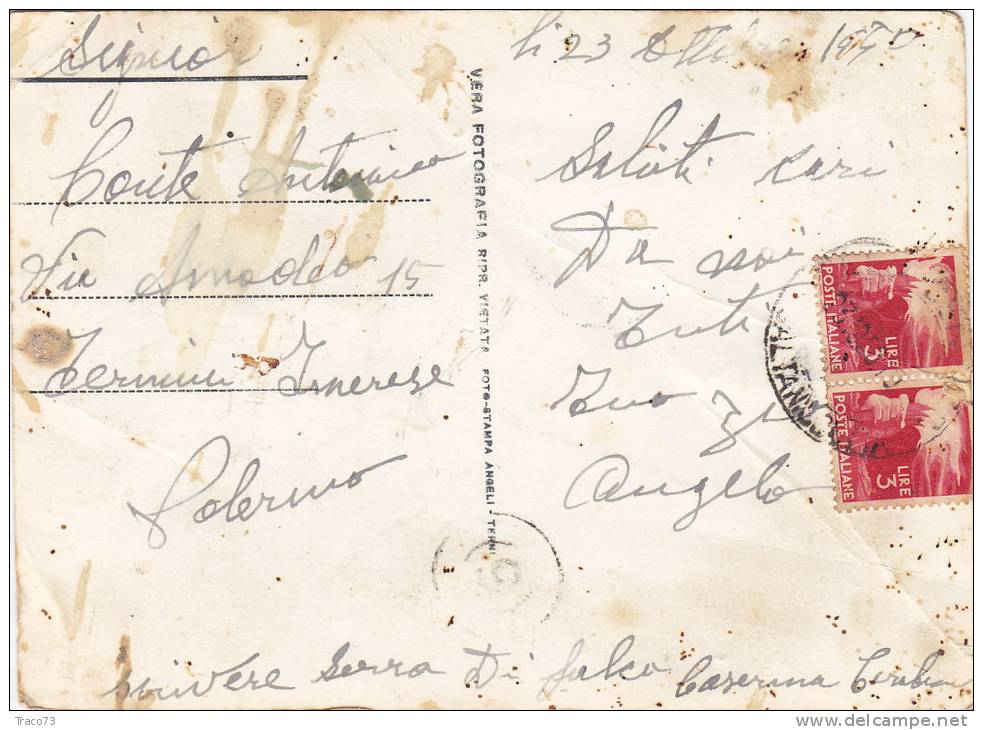 Signor
Conte Antonino
Via Amodeo 15
Termini Imerese
Palermo
VERA FOTOGRAFIA RIPR. VIETATA FOTO-STAMPA ANGELI - TERNI
li 23 Ottobre 1950
Saluti cari
Da noi
Tuti
Tuo zio
Angelo
scrivere Serra Di Falco Caserma
POSTE ITALIANE
LIRE 3
POSTE ITALIANE
LIRE 3
Traco73
www.delcampe.net